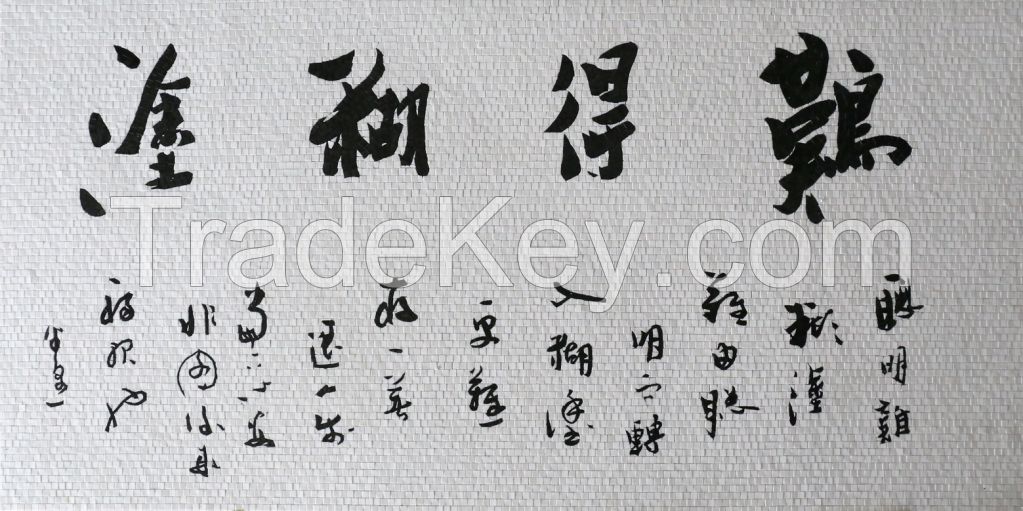 難得糊塗
聰明難
糊塗
難由聰
明而轉
入糊塗
更難
放一著
退一步
當下心安
非圖後來
福報也
TradeKey.com